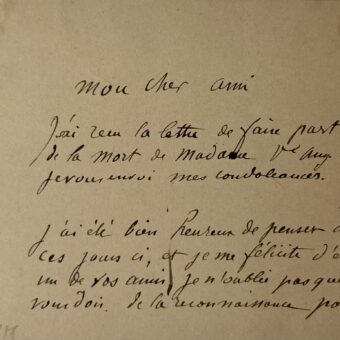 Mon cher ami
J'ai recu la lettre de faire part
de la mort de Madame Vve Aug
je vous envoi mes condoleances.
j'ai été bien heureux de penser à
ces jours ci, et je me félicite d'ê
un de vos amis, je n'oublie pas que
vous dois de la reconnaissance po